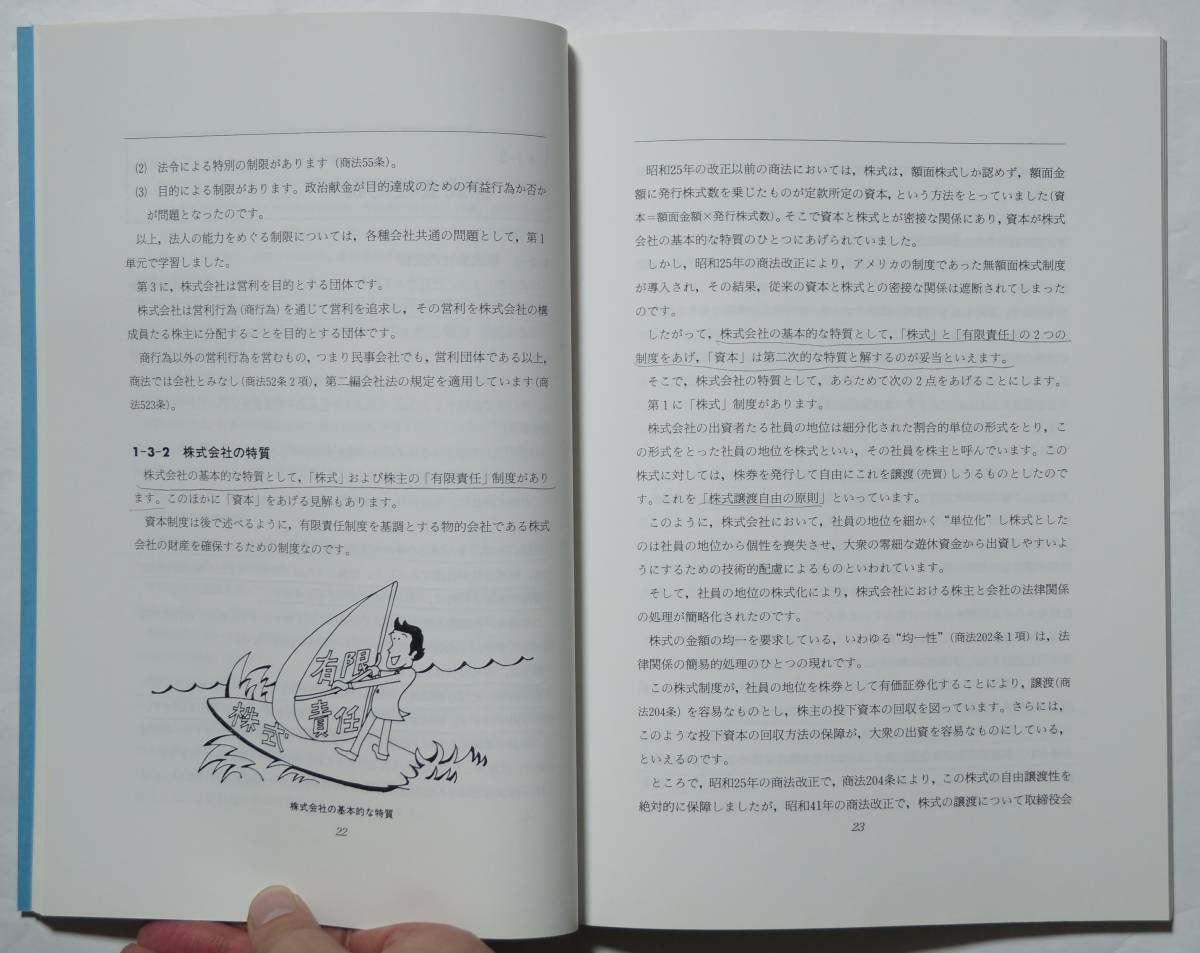 (2) 法令による特別の制限があります (商法55条)。
(3) 目的による制限があります。政治献金が目的達成のための有益行為か否か
が問題となったのです。
以上，法人の能力をめぐる制限については，各種会社共通の問題として，第1
単元で学習しました。
第3に，株式会社は営利を目的とする団体です。
株式会社は営利行為 (商行為) を通じて営利を追求し，その営利を株式会社の構
成員たる株主に分配することを目的とする団体です。
商行為以外の営利行為を営むもの，つまり民事会社でも，営利団体である以上，
商法では会社とみなし (商法52条2項)，第二編会社法の規定を適用しています (商
法523条)。
1-3-2 株式会社の特質
株式会社の基本的な特質として，「株式」および株主の「有限責任」制度があり
ます。このほかに「資本」をあげる見解もあります。
資本制度は後で述べるように，有限責任制度を基調とする物的会社である株式
会社の財産を確保するための制度なのです。
有限
責任
株式
株式会社の基本的な特質
22
昭和25年の改正以前の商法においては，株式は，額面株式しか認めず，額面金
額に発行株式数を乗じたものが定款所定の資本，という方法をとっていました (資
本＝額面金額×発行株式数)。そこで資本と株式とが密接な関係にあり，資本が株式
会社の基本的な特質のひとつにあげられていました。
しかし，昭和25年の商法改正により，アメリカの制度であった無額面株式制度
が導入され，その結果，従来の資本と株式との密接な関係は遮断されてしまった
のです。
したがって，株式会社の基本的な特質として，「株式」と「有限責任」の2つの
制度をあげ，「資本」は第二次的な特質と解するのが妥当といえます。
そこで，株式会社の特質として，あらためて次の2点をあげることにします。
第1に「株式」制度があります。
株式会社の出資者たる社員の地位は細分化された割合的単位の形式をとり，こ
の形式をとった社員の地位を株式といい，その社員を株主と呼んでいます。この
株式に対しては，株券を発行して自由にこれを譲渡 (売買) しうるものとしたので
す。これを「株式譲渡自由の原則」といっています。
このように，株式会社において，社員の地位を細かく“単位化”し株式とした
のは社員の地位から個性を喪失させ，大衆の零細な遊休資金から出資しやすいよ
うにするための技術的配慮によるものといわれています。
そして，社員の地位の株式化により，株式会社における株主と会社の法律関係
の処理が簡略化されたのです。
株式の金額の均一を要求している，いわゆる“均一性” (商法202条1項) は，法
律関係の簡易的処理のひとつの現れです。
この株式制度が，社員の地位を株券として有価証券化することにより，譲渡 (商
法204条) を容易なものとし，株主の投下資本の回収を図っています。さらには，
このような投下資本の回収方法の保障が，大衆の出資を容易なものにしている，
といえるのです。
ところで，昭和25年の商法改正で，商法204条により，この株式の自由譲渡性を
絶対的に保障しましたが，昭和41年の商法改正で，株式の譲渡について取締役会
23